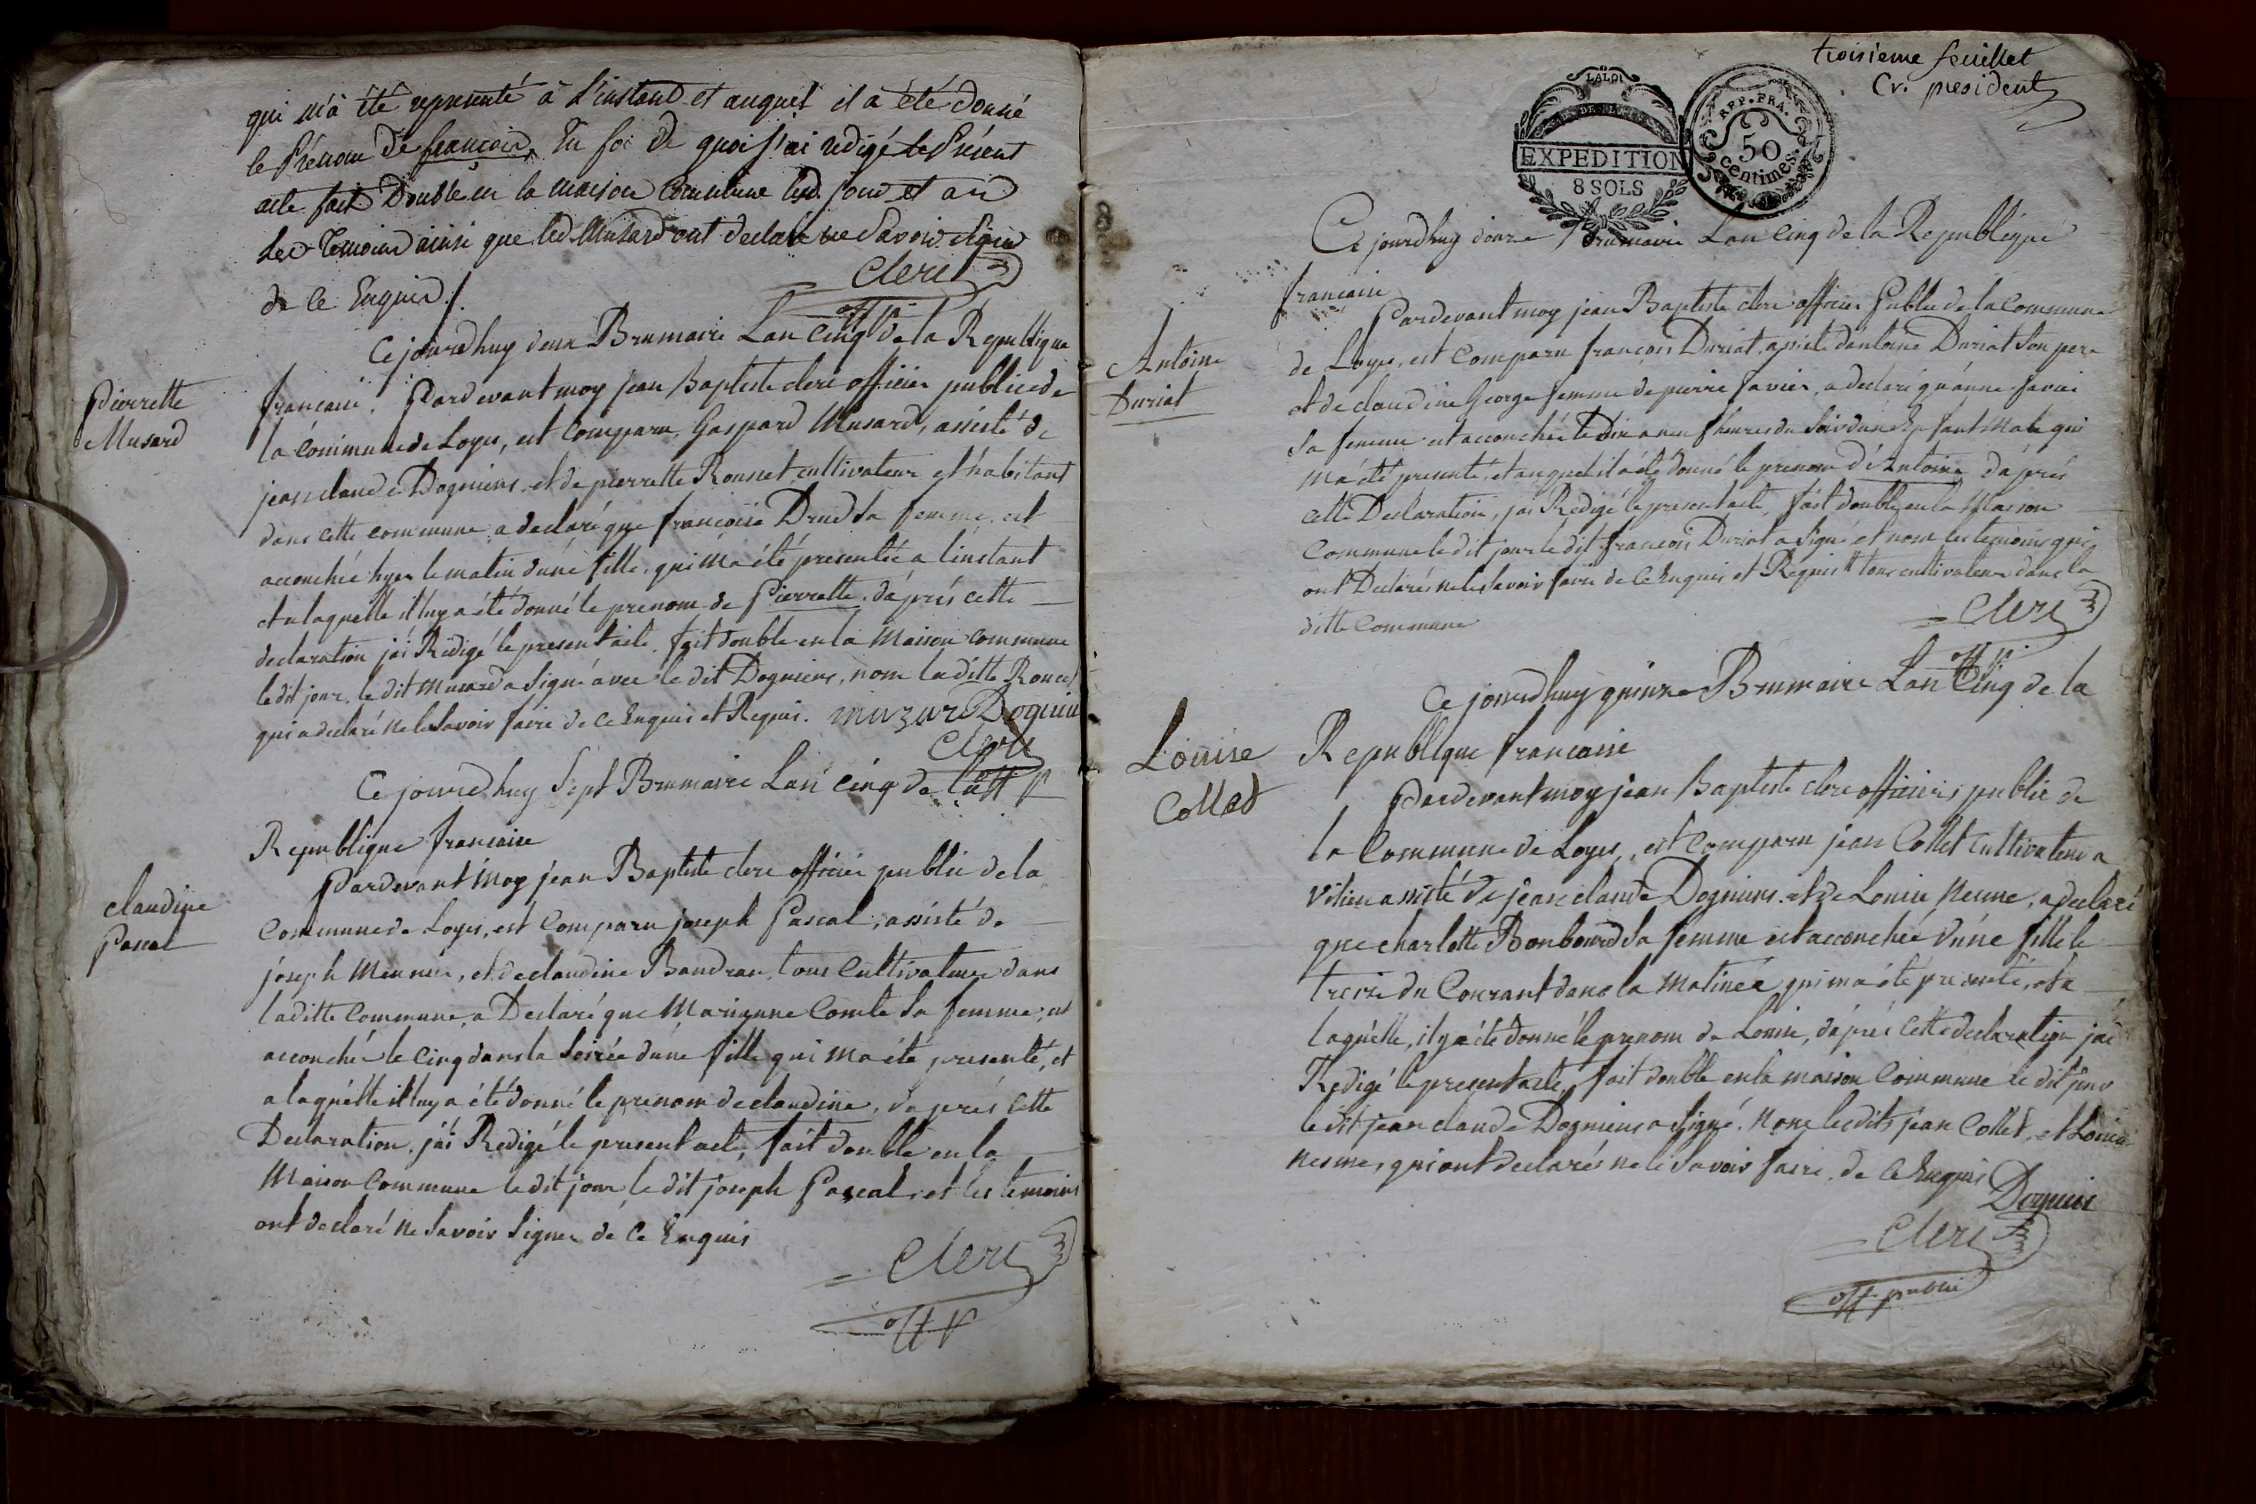 qui m'a été représenté à l'instant et auquel il a été donné
le Prénom de françois, En foi de quoi j'ai redigé le Présent
acte fait Double en la maison Commune led. jour et an
les Temoins ainsi que led Musard ont declaré ne Savoir signer
de Ce Enquis ./.
Clerc
off. p.
Ce jourdhuy deux Brumaire Lan Cinq de la Republique
Pierrette
Musard
francaise. Pardevant moy jean Baptiste clerc officier public de
la Commune de Loyes, est Comparu, Gaspard Musard, assisté de
jean claude Dogniens, et de pierrette Rousset cultivateurs et habitant
dans cette commune a declaré que francoise Drud Sa femme est
accouchée hyer le matin d'une fille, qui m'a été presentée a l'instant
et a laquelle il luy a été donné le prenom de Pierrette. d'áprés cette
declaration j'ai Rédigé le present acte. fait double en la Maison commune
le dit jour, le dit musard a Signé avec le dit Dogniens, non la ditte
qui a declaré ne le Savoir faire de ce Enquis et Requis. muzard Dognin
Clerc
off p
Ce jourdhuy Sept Brumaire Lan Cinq de la
Republique francaise
claudine
Pascal
Pardevant moy jean Baptiste clerc officier public de la
Commune de Loyes, est Comparu joseph Pascal, assisté de
joseph Meunier, et de claudine Baudran, tous Cultivateurs dans
la ditte Commune, a Declaré que Marianne Comte Sa femme, est
accouché le Cinq dans la Soirée d'une fille qui m'a été presenté, et
a laquélle il luy a été donné le prenom de claudine, d'a prés cette
Declaration, j'ái Redigé le present acte, fait double en la
Maison Commune le dit jour le dit joseph Pascal, et les temoins
ont declaré ne Savoir Signer de Ce Enquis
Clerc
off p
troisieme feuillet
Cr. president
LA LOI
EXPEDITION
8 SOLS
REP. FRA.
50
centimes.
Ce jourdhuy douze Brumaire Lan Cinq de la Republique
francaise
Antoine
Duriat
Pardevant moy jean Baptiste clerc officier Public de la Commune
de Loyes, est Comparu francois Duriat, assisté dantoine Duriat Son pere
et de claudine George femme de pierre favier, a declaré qu'anne favier
Sa femme est accouchée le dix a neuf heures du Soir d'un Enfant Male qui
m'a été presenté, et auquel il a été donné le prenom d'Antoine d'áprés
cette Declaration, jai Redigé le present acte, fait double en la Maison
Commune le dit jour le dit francois Duriat a Signé et non les temoins qui
ont Declarés ne le Savoir faire de Ce Enquis et Requis tous cultivateurs dans la
ditte Commune
Clerc
off p.
Ce jourdhuy quinze Brumaire Lan Cinq de la
Louise
Collet
Republique francaise
Pardevant moy jean Baptiste clerc officier public de
la Commune de Loyes, est Comparu jean Collet Cultivateur a
assisté de jean claude Dogniens. et de Louise Nesme, a declaré
que charlotte Bonbourd Sa femme est accouchée d'une fille le
treize du Courant dans la Matinée qui m'a été presenté, et a
laquélle, il y a été donné le prenom de Louise, d'áprés Cette declaration jái
Rédigé le present acte, fait double en la maison Commune le dit jour
le dit jean claude Dogniens a Signé. Non les dits jean Collet, et Louise
Nesme, qui ont declarés ne le Savoir faire. de Ce Enquis
Dognin
Clerc
off. public